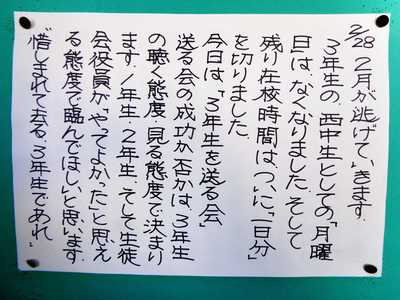 2/28 2月が逃げていきます.
3年生の、西中生としての「月曜
日」は、なくなりました.そして
残り在校時間は、ついに「一日分」
を切りました.
今日は、「3年生を送る会」
送る会の成功か否かは、3年生
の聴く態度・見る態度で決まり
ます.1年生・2年生、そして生徒
会役員が、"やってよかった"と思え
る態度で臨んでほしいと思います
"惜しまれて去る、3年生であれ"